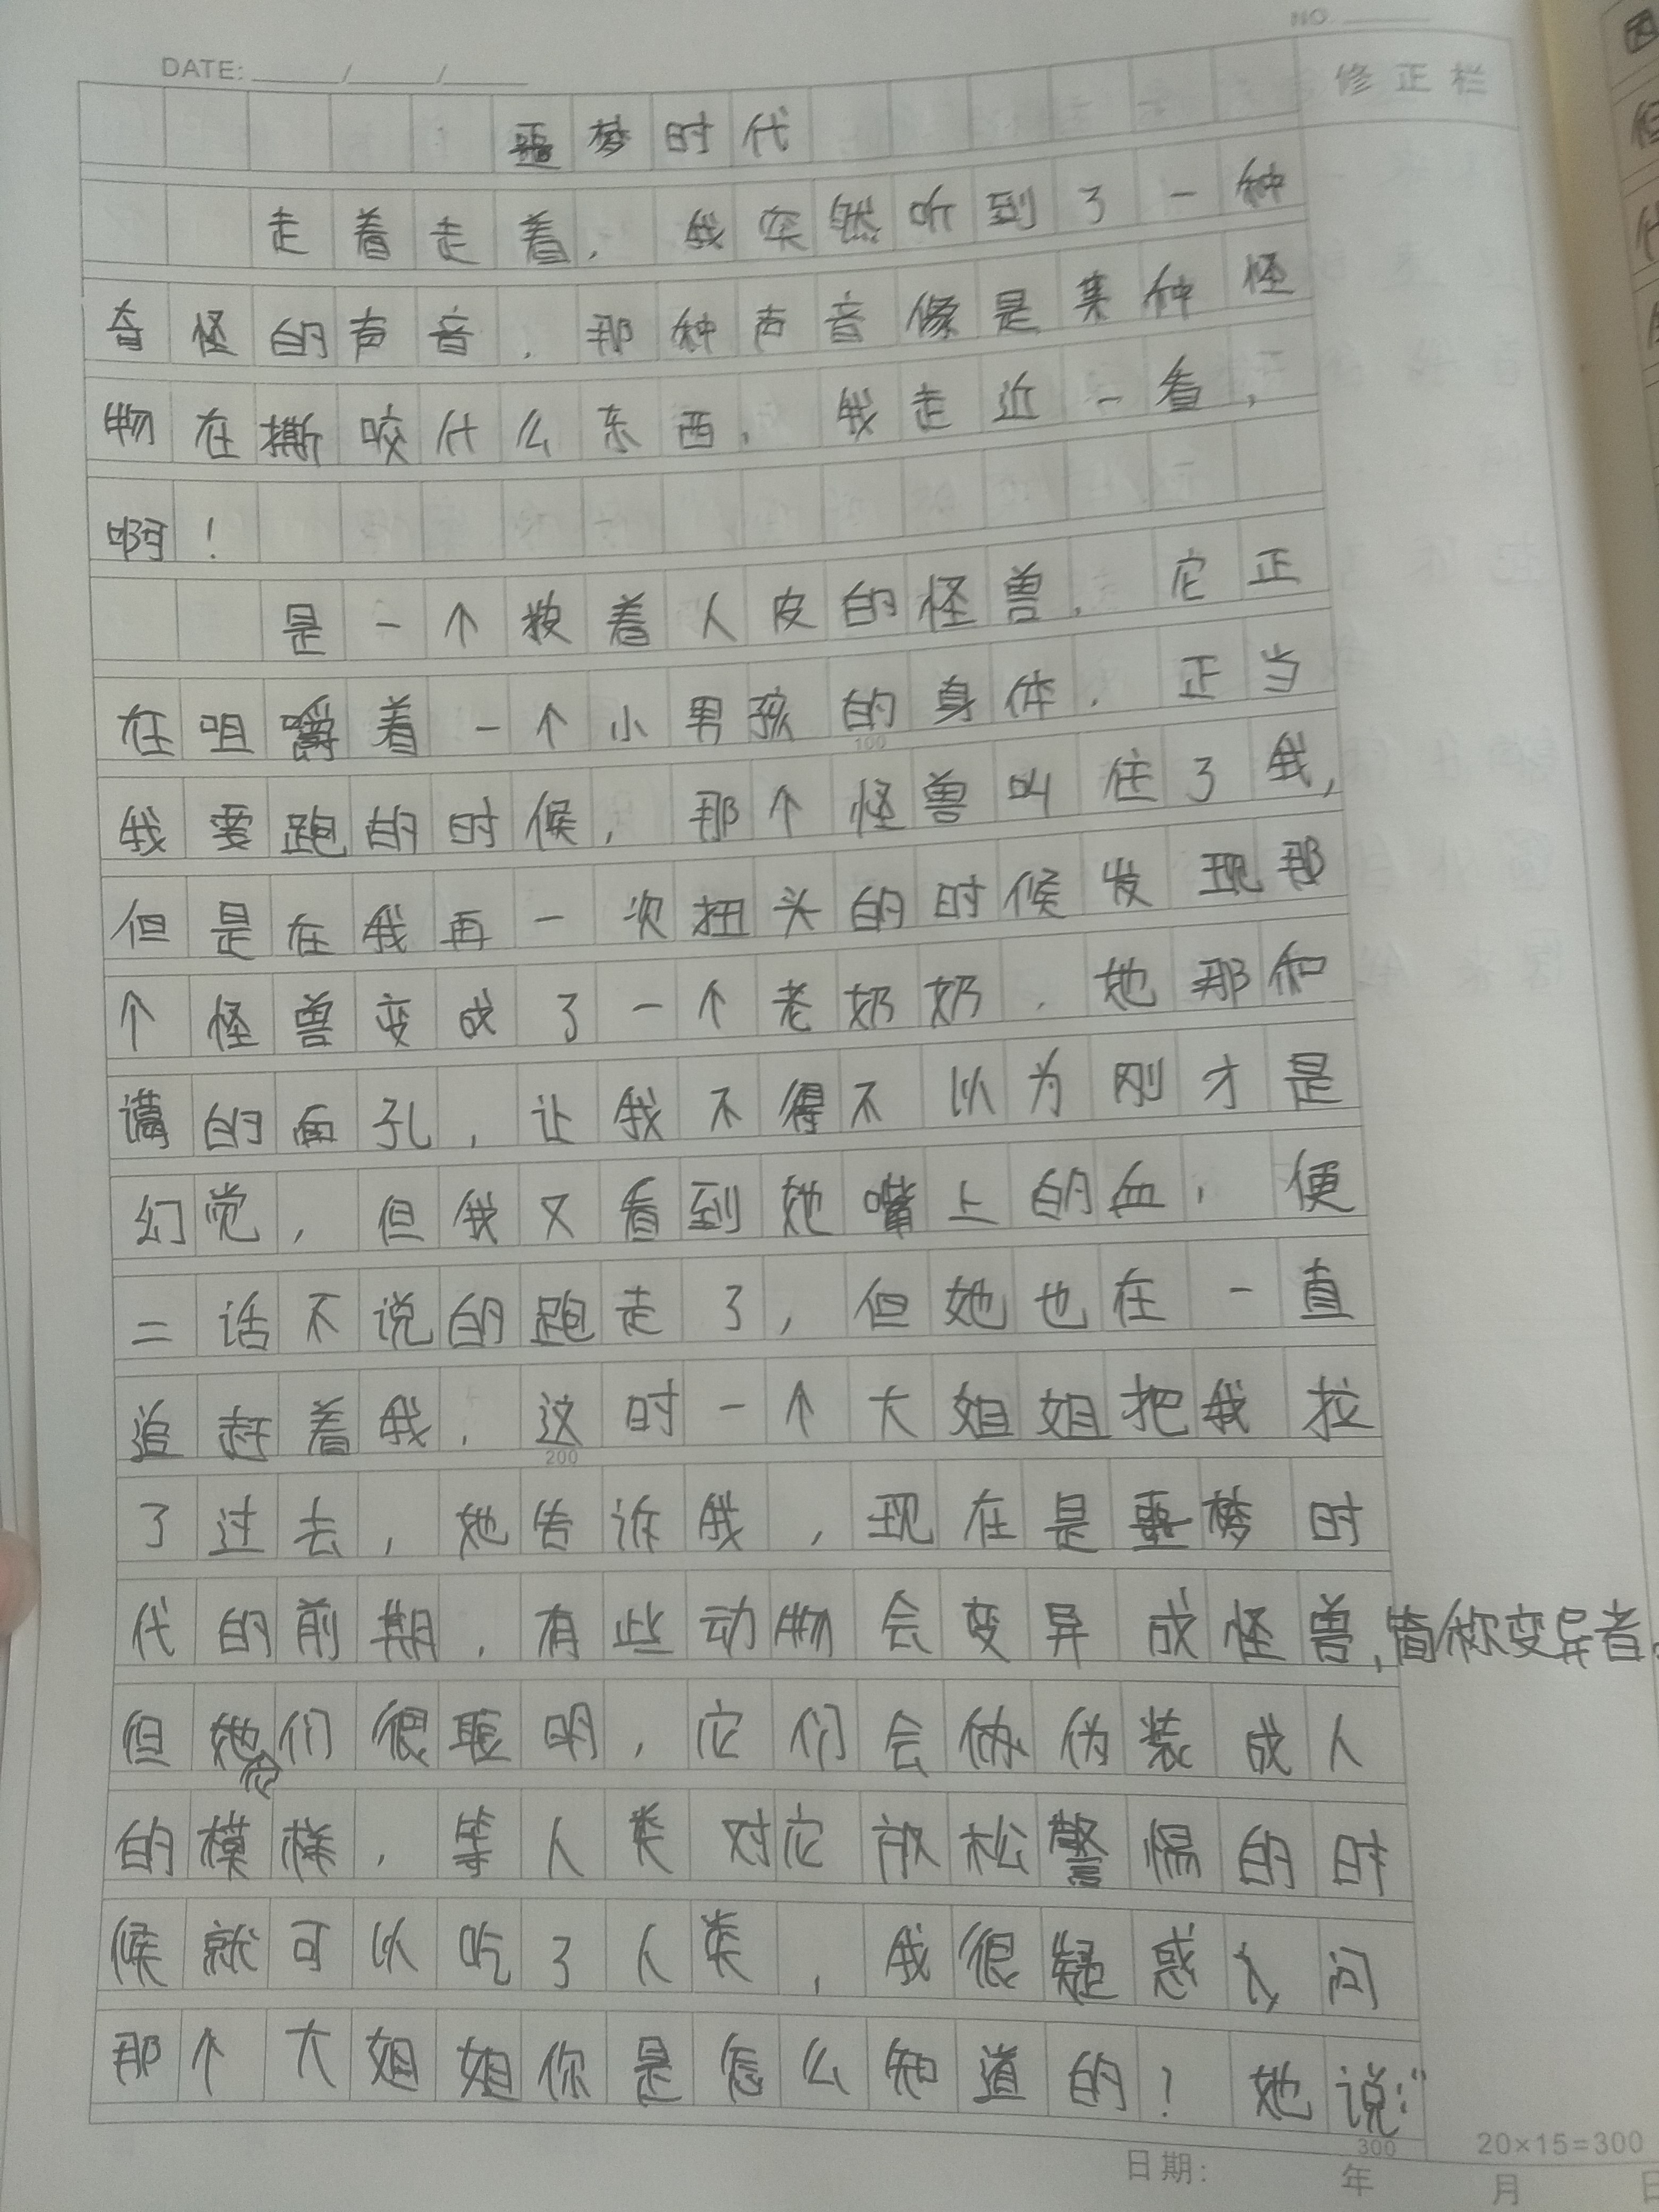 NO.
DATE: / /
修正栏
噩梦时代
走着走着，我突然听到了一种
奇怪的声音，那种声音像是某种怪
物在撕咬什么东西，我走近一看，
啊！
是一个披着人皮的怪兽，它正
在咀嚼着一个小男孩的身体，正当
我要跑的时候，那个怪兽叫住了我，
但是在我再一次扭头的时候发现那
个怪兽变成了一个老奶奶，她那和
蔼的面孔，让我不得不以为刚才是
幻觉，但我又看到她嘴上的血，便
二话不说的跑走了，但她也在一直
追赶着我，这时一个大姐姐把我拉
了过去，她告诉我，现在是噩梦时
代的前期，有些动物会变异成怪兽，简称变异者。
但它们很聪明，它们会伪装成人
的模样，等人类对它放松警惕的时
候就可以吃了人类，我很疑惑，问
那个大姐姐你是怎么知道的？她说：“
100
200
300
20×15=300
日期: 年 月 日